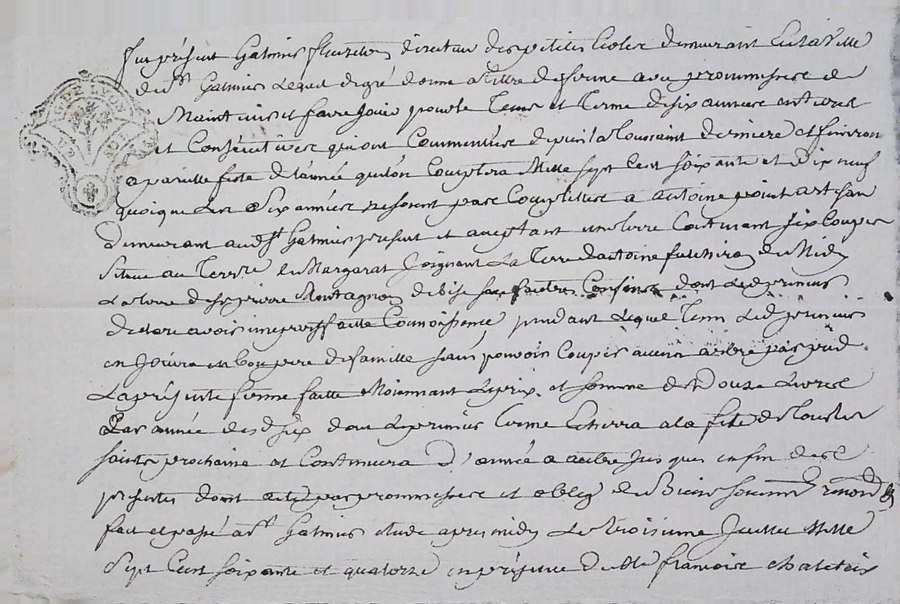 fut présent Galmier directeur des petites Ecoles demeurant En la Ville
de St Galmier Lequel de gré donne a titre de ferme avec promesse de
Maintenir et faire Jouir pour le Tems et Terme de six années entieres
et Consécutives qui ont Commencées depuis la toussaint derniere et finiront
a pareille feste de l'année que l'on Comptera Mille sept Cent soixante et dix neuf
quoique les six années ne soient pas Complettes a antoine point artisan
demeurant aud St Galmier présent et acceptant une terre Contenant six Coupées
Située au Terroir de Margarat Joignant La Terre d'antoine de Midy
La terre de pierre Montagnon de bise sauf autres Confins dont led preneur
declare avoir Connoissance pendant Lequel Tems led preneur
en Jouira en bon pere de famille sans pouvoir Couper aucun arbre par pied
La présente ferme faitte Moiennant Le prix et somme de Douze Livres
Par année des six dont Le premier terme Echerra a la fête de tous les
saints prochaine et Continuera D'année a autre jusques en fin des
présentes dont acte par promesses et oblig de Biens soumis renond &
fait et passé a St Galmier etude apres midy Le troisieme Juillet Mille
Sept Cent soixante et quatorze en présence de françoise